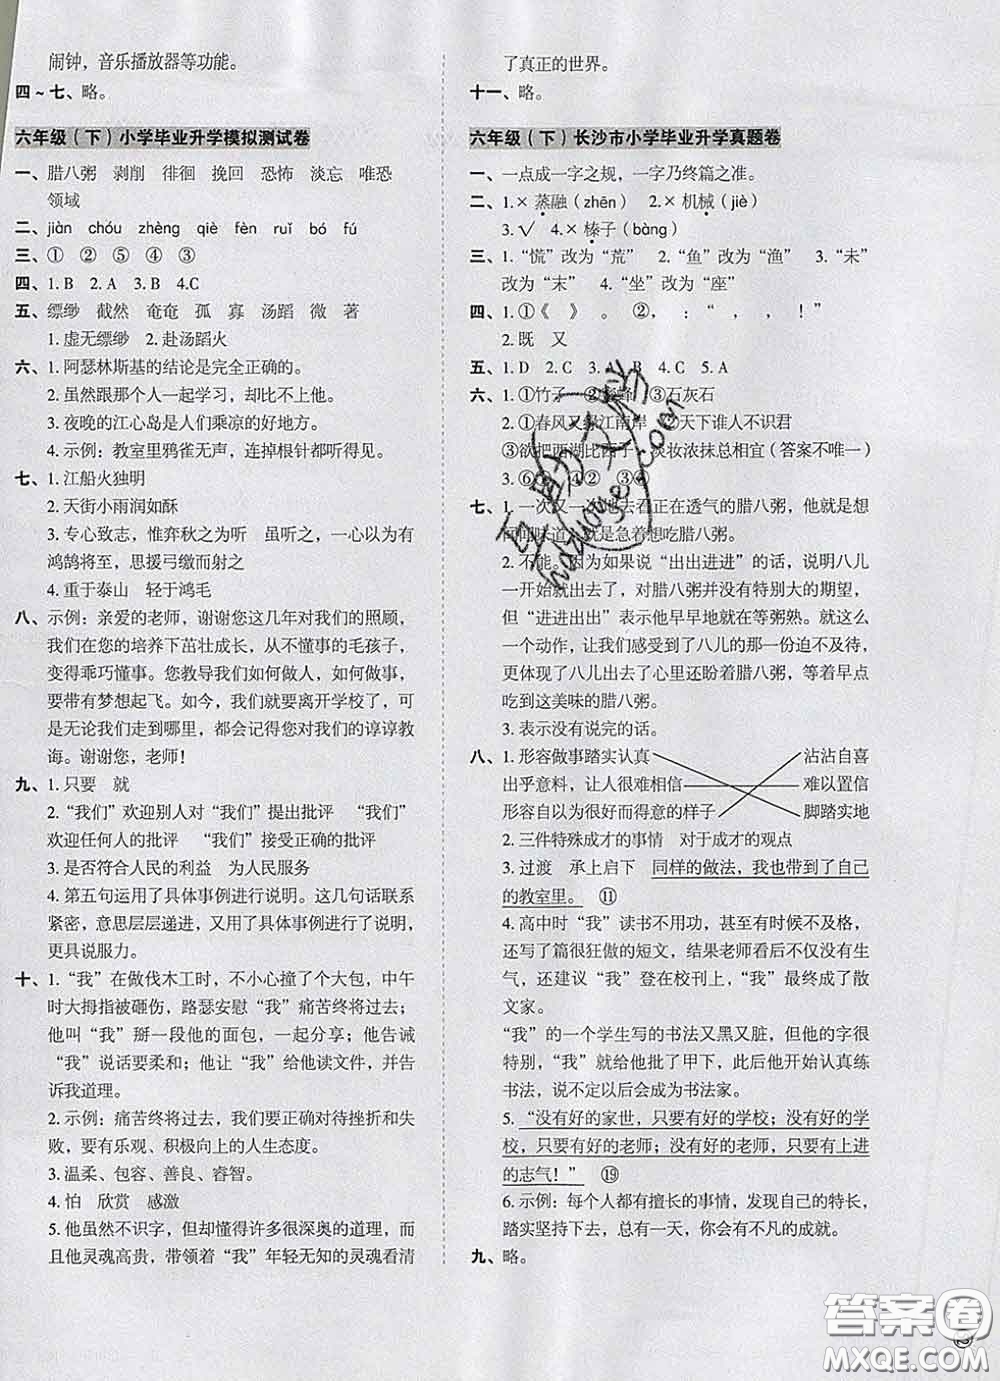 闹钟，音乐播放器等功能。
四～七、略。
六年级（下）小学毕业升学模拟测试卷
一、腊八粥　剥削　徘徊　挽回　恐怖　淡忘　唯恐
领域
二、jiàn　chóu　zhèng　qiè　fèn　ruǐ　bó　fú
三、①　②　⑤　④　③
四、1. B　2. A　3. B　4.C
五、缥缈　截然　奄奄　孤　寡　汤蹈　微　著
1. 虚无缥缈　2. 赴汤蹈火
六、1. 阿瑟林斯基的结论是完全正确的。
2. 虽然跟那些人一起学习，却比不上他。
3. 夜晚的江心岛是人们乘凉的好地方。
4. 示例：教室里鸦雀无声，连掉根针都听得见。
七、1. 江船火独明
2. 天街小雨润如酥
3. 专心致志，惟弈秋之为听　虽听之，一心以为有
鸿鹄将至，思援弓缴而射之
4. 重于泰山　轻于鸿毛
八、示例：亲爱的老师，谢谢您这几年对我们的照顾，
我们在您的培养下茁壮成长，从不懂事的毛孩子，
变得乖巧懂事。您教导我们如何做人，如何做事，
要带有梦想起飞。如今，我们就要离开学校了，可
是无论我们走到哪里，都会记得您对我们的谆谆教
诲。谢谢您，老师！
九、1. 只要　就
2. “我们”欢迎别人对“我们”提出批评　“我们”
欢迎任何人的批评　“我们”接受正确的批评
3. 是否符合人民的利益　为人民服务
4. 第五句运用了具体事例进行说明。这几句话联系
紧密，意思层层递进，又用了具体事例进行了说明，
更具说服力。
十、1. “我”在做伐木工时，不小心撞了个大包，中午
时大拇指被砸伤，路瑟安慰“我”痛苦终将过去；
他叫“我”掰一段他的面包，一起分享；他告诫
“我”说话要柔和；他让“我”给他读文件，并告
诉我道理。
2. 示例：痛苦终将过去，我们要正确对待挫折和失
败，要有乐观、积极向上的人生态度。
3. 温柔、包容、善良、睿智。
4. 怕　欣赏　感激
5. 他虽然不识字，但却懂得许多很深奥的道理，而
且他灵魂高贵，带领着“我”年轻无知的灵魂看清
了真正的世界。
十一、略。
六年级（下）长沙市小学毕业升学真题卷
一、一点成一字之规，一字乃终篇之准。
二、1. × 蒸融（zhēn）　2. × 机械（jiè）
3. √　4. × 榛子（bàng）
三、1. “慌”改为“荒”　2. “鱼”改为“渔”　3. “未”
改为“末”　4. “坐”改为“座”
四、1. ①《　》。　②，：“　，　，　！”
2. 既　又
五、1. D　2. C　3. A　4. C　5. A
六、1. ①竹子　②蜂　③石灰石
2. ①春风又绿江南岸　②天下谁人不识君
③欲把西湖比西子，淡妆浓抹总相宜（答案不唯一）
3. ⑥　④②　③①
七、1. 一次又一次地去看正在透气的腊八粥，他就是想
闻闻味道，就是急着想吃腊八粥。
2. 不能。因为如果说“出出进进”的话，说明八儿
一开始就在外面了，对腊八粥并没有特别大的期望，
但“进进出出”表示他早早地就在等粥熟。就这么
一个动作，让我们感受到了八儿的那一份迫不及待，
更体现了八儿出去了心里还盼着腊八粥，等着早点
吃到这美味的腊八粥。
3. 表示没有说完的话。
八、1. 形容做事踏实认真　沾沾自喜
出乎意料，让人很难相信　难以置信
形容自以为很好而得意的样子　脚踏实地
2. 三件特殊成才的事情　对于成才的观点
3. 过渡　承上启下　同样的做法，我也带到了自己
的教室里。　⑪
4. 高中时“我”读书不用功，甚至有时候不及格，
还写了篇很狂傲的短文，结果老师看后不仅没有生
气，还建议“我”登在校刊上，“我”最终成了散
文家。
“我”的一个学生写的书法又黑又脏，但他的字很
特别，“我”就给他批了甲下，此后他开始认真练
书法，说不定以后会成为书法家。
5. “没有好的家世，只要有好的学校；没有好的学
校，只要有好的老师；没有好的老师，只要有上进
的志气！”　⑲
6. 示例：每个人都有擅长的事情，发现自己的特长，
踏实坚持下去，总有一天，你会有不凡的成就。
九、略。
答案圈
MXQE.COM